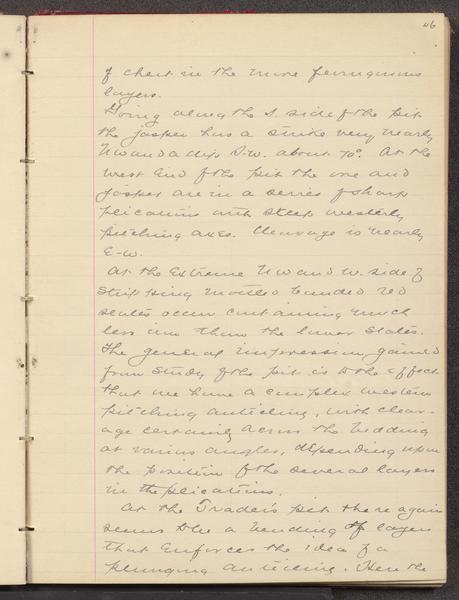 46
of chert in the more ferruginous
layers.
Going along the S. side of the pit
the jasper has a strike very nearly
NW and a dip S.W. about 70°. At the
west End of the pit the ore and
jasper are in a series of sharp
plications with steep westerly
pitching axes. Cleavage is nearly
E-W.
At the Extreme NW and W. side of
stripping mottled banded red
slates occur containing much
less iron than the lower slates.
The general impression gained
from study of the pit is to the effect
that we have a complex western
pitching anticline, with cleav-
age certainly across the bedding
at various angles, depending upon
the position of the several layers
in the plications.
At the Traders pit there again
seems to be a bending of layers
that Enforces the idea of a
plunging anticline. Here the